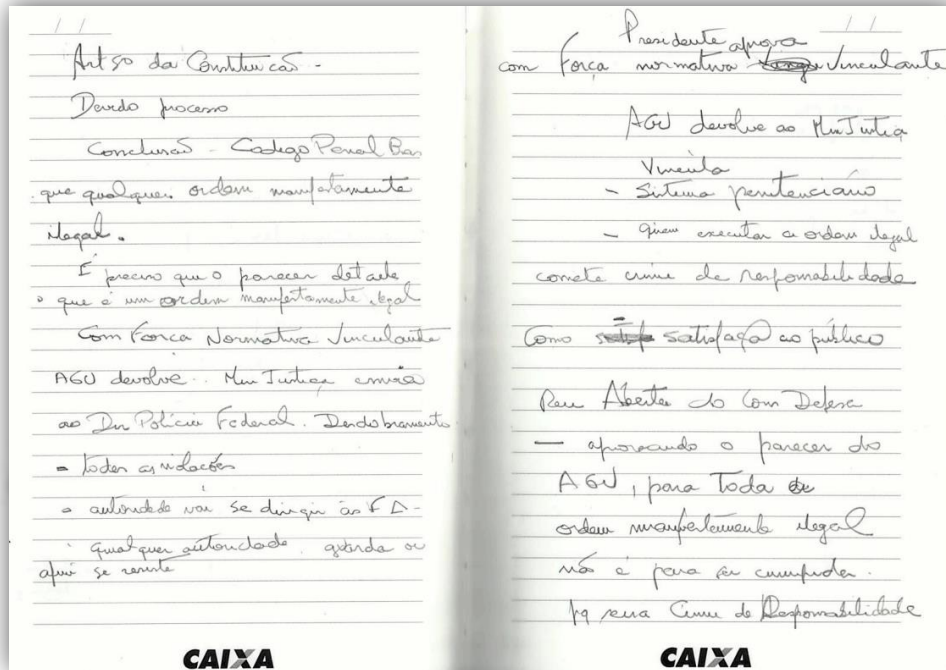 Art 5o da Constituicão -
Devido processo
Conclusão - Codigo Penal Bras
que qualquer ordem manifestamente
ilegal.
É preciso que o parecer detalhe
o que é um ordem manifestamente ilegal
Com Força Normativa Vinculante
AGU devolve.. Min Justiça envia
ao Dir Polícia Federal. Desdobramento
- todas as violações
autoridade vai se dirigir às
qualquer autoridade
se resiste
CAIXA
/ /
Presidente aprova
com Força normativa Vinculante
AGU devolve ao Min Justiça
Vincula
- Sistema penitenciário
- quem executar a ordem ilegal
comete crime de responsabilidade
Como satisfação ao público
Reu Aberta do Com Defesa
- aprovando o parecer do
AGU, para toda
ordem manifestamente ilegal
não é para ser cumprida.
pq seria Crime de Responsabilidade
CAIXA